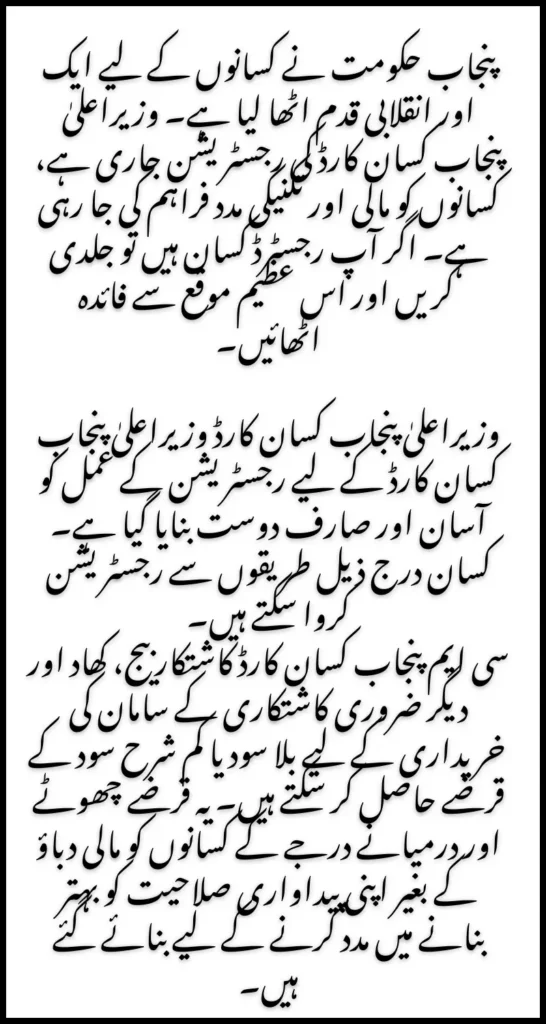 پنجاب حکومت نے کسانوں کے لیے ایک
اور انقلابی قدم اٹھا لیا ہے۔ وزیراعلیٰ
پنجاب کسان کارڈ کی رجسٹریشن جاری ہے،
کسانوں کو مالی اور تکنیکی مدد فراہم کی جا رہی
ہے۔ اگر آپ رجسٹرڈ کسان ہیں تو جلدی
کریں اور اس عظیم موقع سے فائدہ
اٹھائیں۔
وزیراعلیٰ پنجاب کسان کارڈ وزیراعلیٰ پنجاب
کسان کارڈ کے لیے رجسٹریشن کے عمل کو
آسان اور صارف دوست بنایا گیا ہے۔
کسان درج ذیل طریقوں سے رجسٹریشن
کروا سکتے ہیں۔
سی ایم پنجاب کسان کارڈ کاشتکار بیج، کھاد اور
دیگر ضروری کاشتکاری کے سامان کی
خریداری کے لیے بلا سود یا کم شرح سود کے
قرضے حاصل کر سکتے ہیں۔ یہ قرضے چھوٹے
اور درمیانے درجے کے کسانوں کو مالی دباؤ
کے بغیر اپنی پیداواری صلاحیت کو بہتر
بنانے میں مدد کرنے کے لیے بنائے گئے
ہیں۔